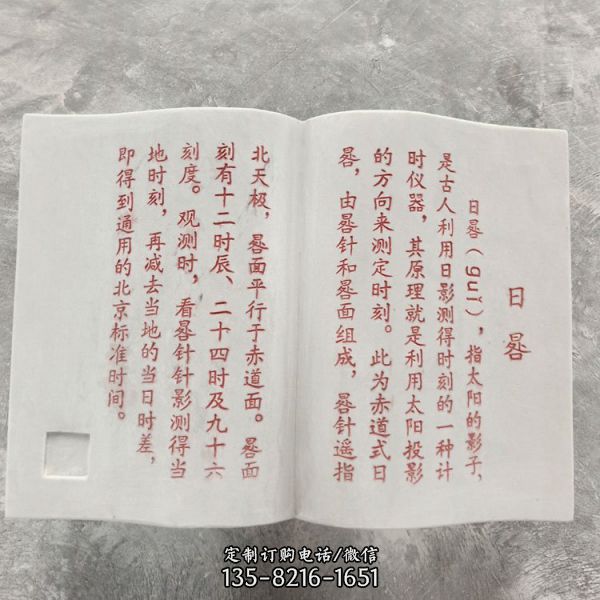 日晷
日晷(guǐ)，指太阳的影子、
是古人利用日影测得时刻的一种计
时仪器，其原理就是利用太阳投影
的方向来测定时刻。此为赤道式日
晷，由晷针和晷面组成，晷针遥指
北天极，晷面平行于赤道面。晷面
刻有十二时辰、二十四时及九十六
刻度。观测时，看晷针针影测得当
地时刻，再减去当地的当日时差，
即得到通用的北京标准时间。
定制订购电话/微信
135-8216-1651